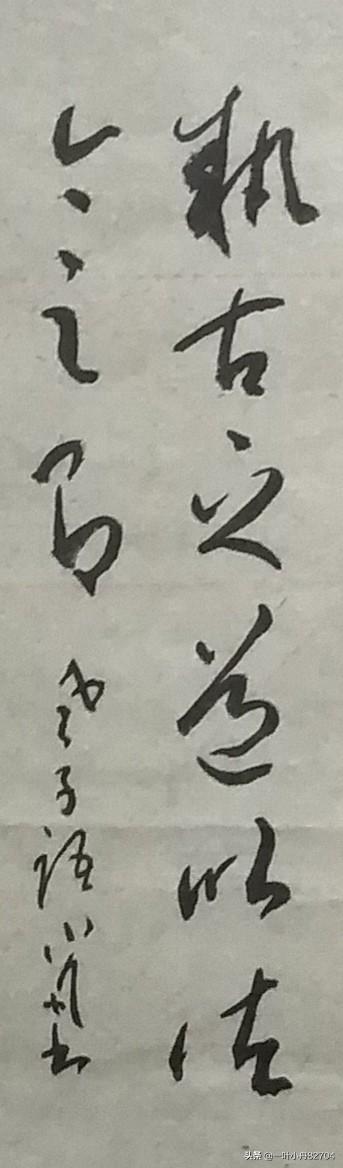 執古之道以御
今之有 老子語 小丹書
头条 @一叶小丹82704